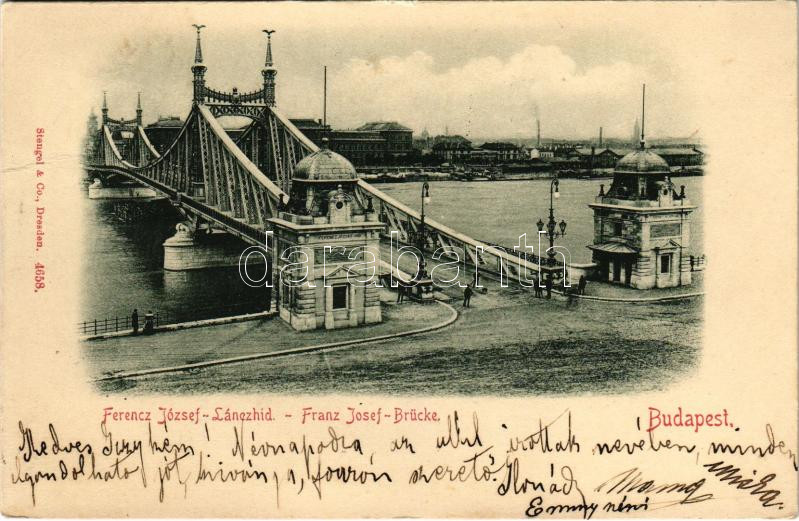 Stengel & Co., Dresden. 4658.
darabanth
Ferencz József-Lánczhid. - Franz Josef-Brücke.
Budapest.
Kedves ! Névnapodra, az alul irottak nevében, minden
elgondolható jót kiván, a, forron szerető
Mama
Emmy néni